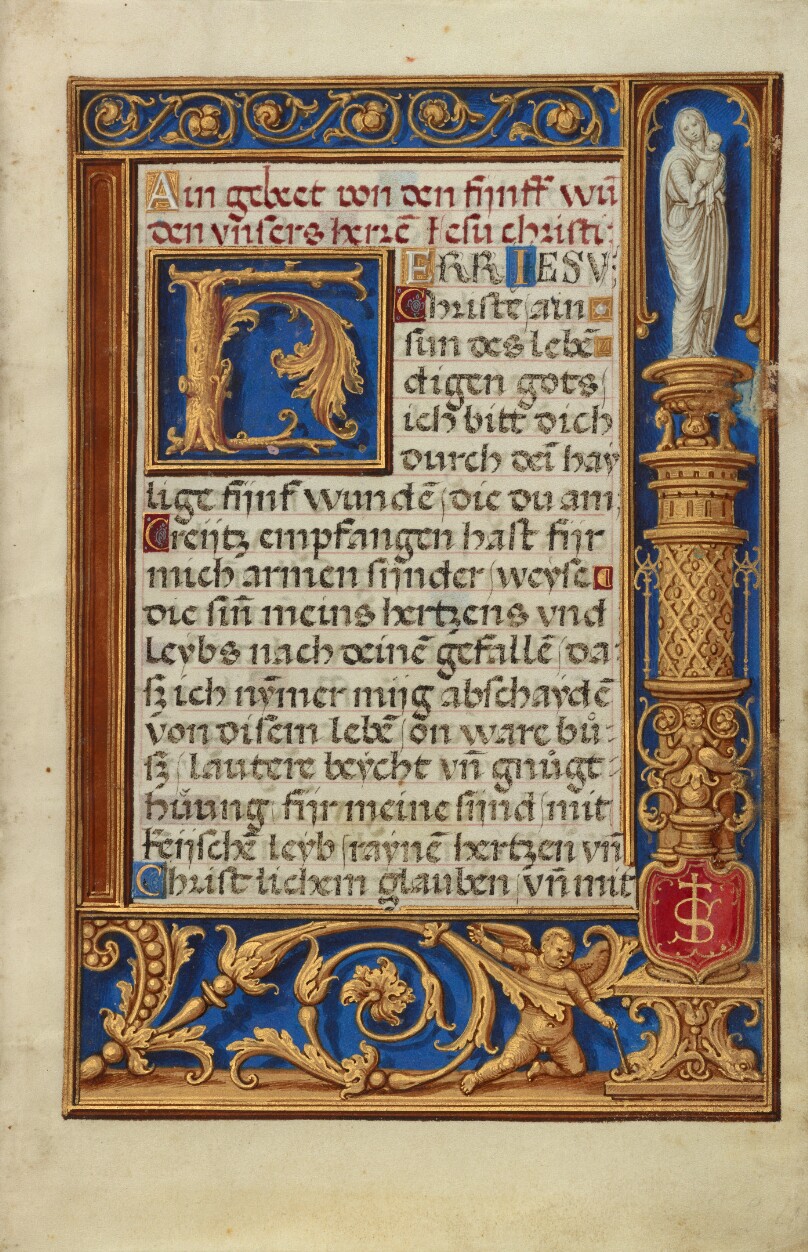 Ain gebeet von den fünff wu̅
den vn̅sers herre̅ Iesu christi:
H ERR IESV:
Christe / ain
sun des lebe̅
digen gots /
ich bitt dich
durch dei̅ hay
lige fünf wunde̅ / die du am
Creütz empfangen hast für
mich armen sünder / weyse
die sin̅ meins hertzens vnd
Leybs nach deine̅ gefalle̅ / da
ß ich nym̅er müg abschayde̅
von disem lebe̅ / on ware bů
ß / lautere beycht vn̅ gnůgt
hůung für meine sünd / mit
keüsche̅ leyb / rayne̅ hertzen vn̅
Christlichem glauben / vn̅ mit